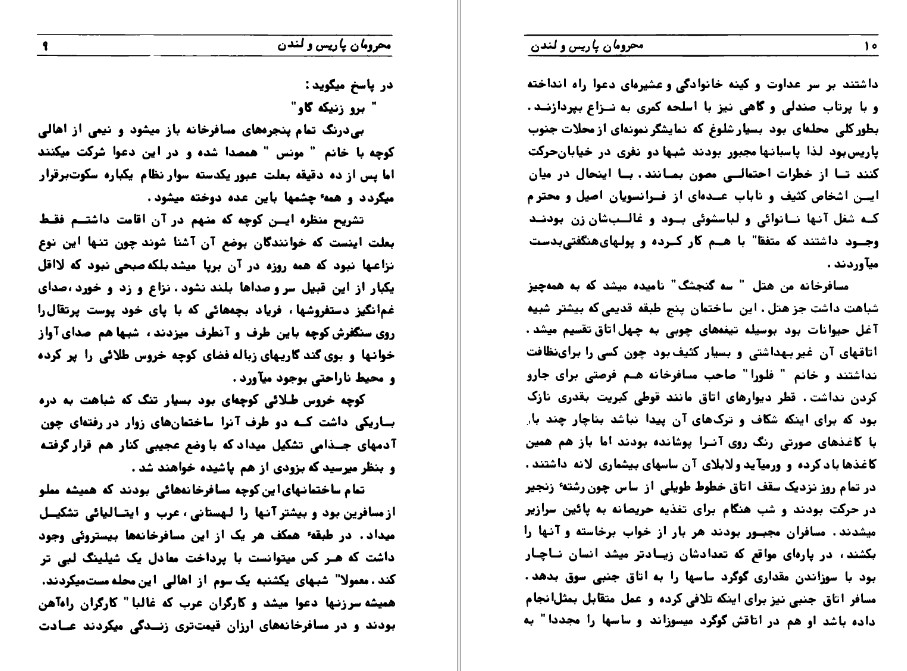 محرومان پاریس و لندن ۹
در پاسخ میگوید :
" برو زنیکه گاو"
بی‌درنگ تمام پنجره‌های مسافرخانه باز میشود و نیمی از اهالی
کوچه با خانم " مونس " همصدا شده و در این دعوا شرکت میکنند
اما پس از ده دقیقه بعلت عبور یکدسته سوار نظام یکباره سکوت‌برقرار
میگردد و همهٔ چشمها باین عده دوخته میشود .
تشریح منظره ایـن کوچه که منهم در آن اقامت داشتـم فقـط
بعلت اینست که خوانندگان بوضع آن آشنا شوند چون تنها این نوع
نزاعها نبود که همه روزه در آن برپا میشد بلکه صبحی نبود که لااقل
یکبار از این قبیل سر و صداها بلند نشود . نزاع و زد و خورد ، صدای
غم‌انگیز دستفروشها ، فریاد بچه‌هائی که با پای خود پوست پرتقال‌را
روی سنگفرش کوچه باین طرف و آنطرف میزدند ، شبها هم صدای آواز
خوانها و بوی گند گاریهای زباله فضای کوچه خروس طلائی را پر کرده
و محیط ناراحتی بوجود میآورد .
کوچه خروس طـلائی کوچه‌ای بود بسیار تنگ که شباهت به دره
بـاریکی داشت کـه دو طرف آنرا ساختمان‌های زوار در رفته‌ای چون
آدمهای جـذامی تشکیل میداد که با وضع عجیبی کنار هم قرار گرفتـه
و بنظر میرسید که بزودی از هم پاشیده خواهند شد .
تمام ساختمانهای این کوچه مسافرخانه‌هائی بودند که همیشه مملو
از مسافرین بود و بیشتر آنها را لهستانی ، عرب و ایتالیائی تشکیـل
میداد . در طبقهٔ همکف هر یک از این مسافرخانه‌ها بیستروئی وجود
داشت که هـر کس میتوانست با پرداخت معادل یک شیلینگ لبی تر
کند . معمولا" شبهای یکشنبه یک سوم از اهالی این محله مست‌میکردند.
همیشه سر زنها دعوا میشد و کارگران عرب که غالبا" کارگران راه‌آهن
بودند و در مسافرخانه‌های ارزان قیمت‌تری زنـدگی میکردند عـادت
محرومان پاریس و لندن ۱۰
داشتند بر سر عداوت و کینه خانوادگی و عشیره‌ای دعوا راه انداخته
و با پرتاب صندلی و گاهی نیز با اسلحه کمری به نـزاع بپردازنـد .
بطور کلی محله‌ای بود بسیار شلوغ که نمایشگر نمونه‌ای از محلات جنوب
پاریس‌بود لذا پاسبانها مجبور بودند شبها دو نفری در خیابان‌حرکت
کنند تـا از خطرات احتمالـی مصون بمـانند . بـا اینحال در میان
ایـن اشخاص کثیف و ناباب عده‌ای از فـرانسویان اصیل و محتـرم
کـه شغل آنها نـانوائی و لباسشوئی بـود و غالب‌شان زن بودنـد
وجـود داشتند که متفقا" با هـم کار کـرده و پولهای‌هنگفتی‌بدست
میآوردند .
مسافرخانه من هتل " سه گنجشگ" نامیده میشد که به همه‌چیز
شباهت داشت جز هتل . این ساختمان پنج طبقه قدیمی که بیشتر شبیه
آغل حیوانات بود بوسیله تیغه‌های چوبی به چهل اتاق تقسیم میشد .
اتاقهای آن غیر بهداشتی و بسیار کثیف بود چون کسی را برای‌نظافت
نداشتند و خانم " فلورا" صاحب مسافرخانه هـم فرصتی برای جارو
کردن نداشت . قطر دیوارهای اتاق مانند قوطی کبریت بقدری نازک
بود که برای اینکه شکاف و ترک‌های آن پیدا نباشد بناچار چند بار
با کاغذهای صورتی رنگ روی آنـرا پوشانده بودند اما باز هم همین
کاغذها باد کرده و ورمیآید و لابلای آن ساسهای بیشماری لانه داشتند .
در تمام روز نزدیک سقف اتاق خطوط طویلی از ساس چون رشتهٔ زنجیر
در حرکت بودند و شب هنگام برای تغذیه حریصانه به پائین سرازیر
میشدند . مسافران مجبور بودند هر بار از خواب برخاسته و آنهـا را
بکشند ، در پاره‌ای مواقع که تعدادشان زیـادتر میشد انسان نـاچـار
بود با سوزاندن مقداری گوگرد ساسها را به اتاق جنبی سوق بدهد .
مسافر اتاق جنبی نیز برای اینکه تلافی کرده و عمل متقابل بمثل‌انجام
داده باشد او هم در اتاقش گوگرد میسوزاند و ساسها را مجددا" به